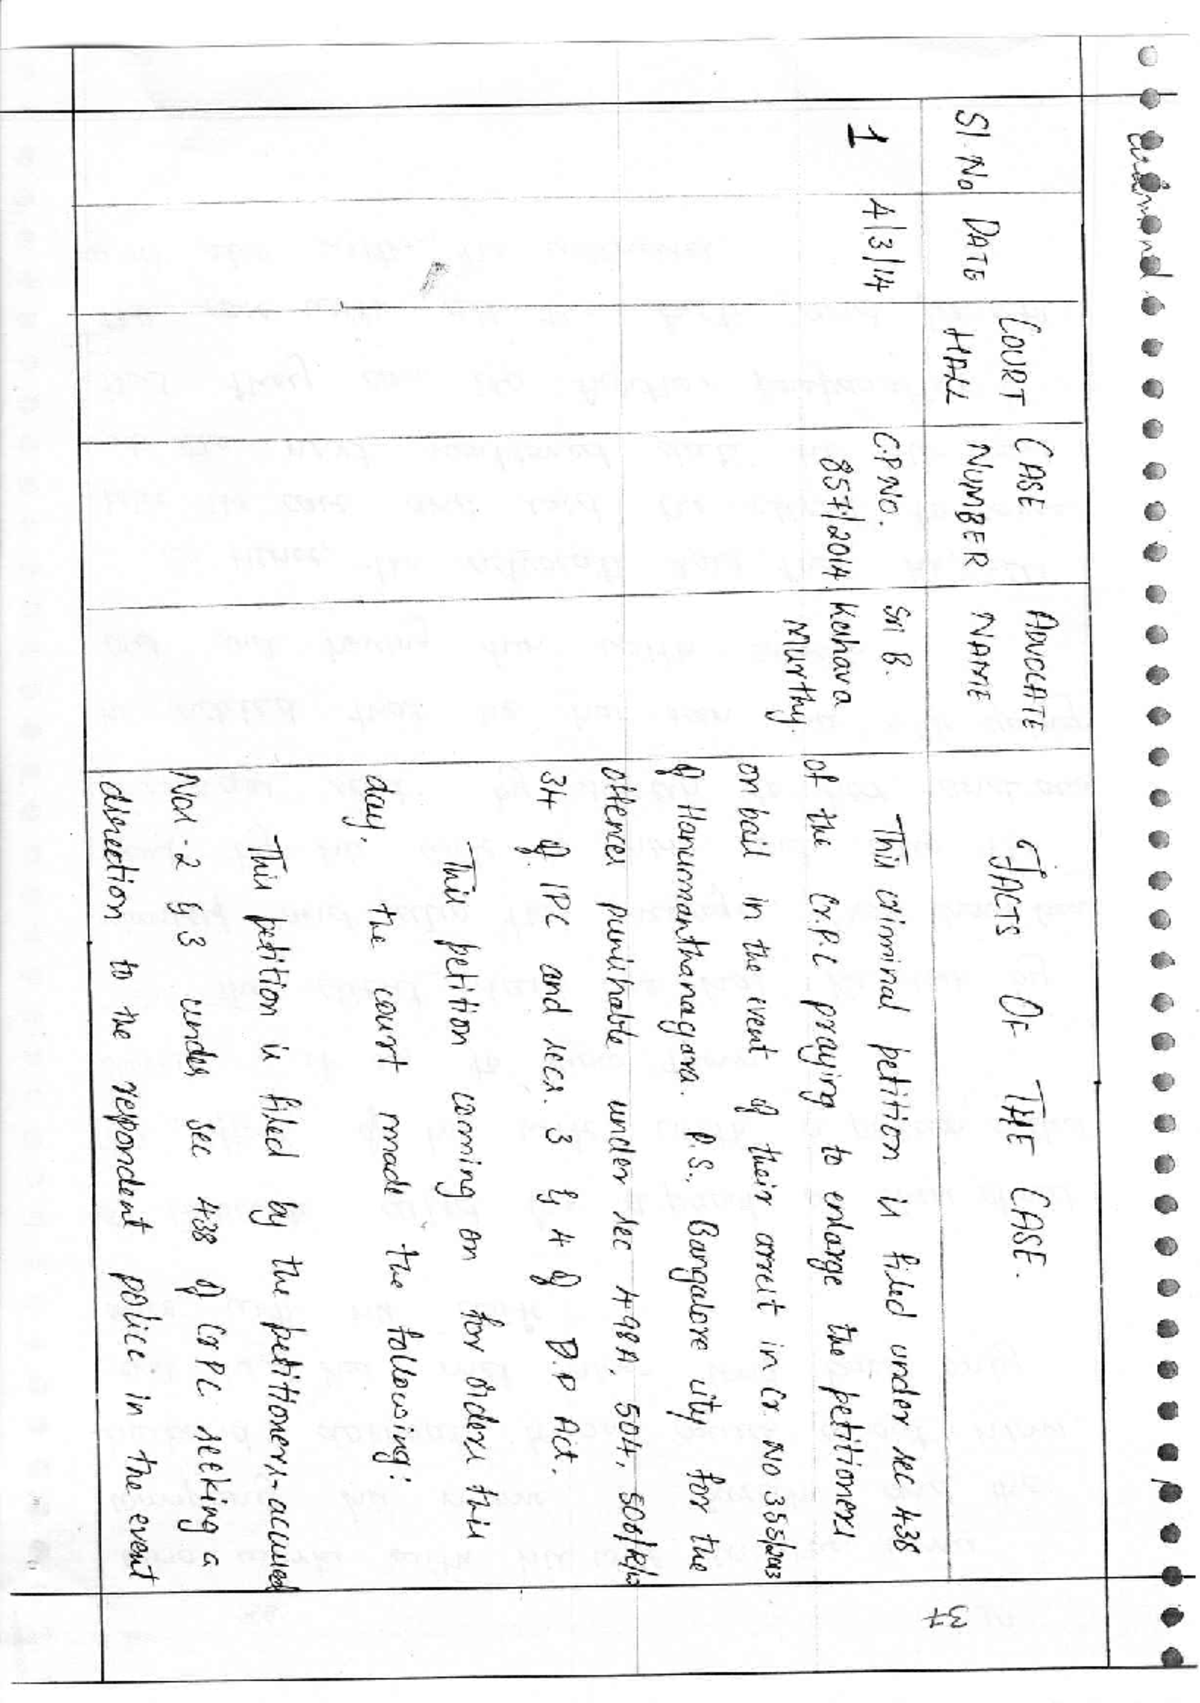 Criminal
37
Sl. No DATE COURT HALL CASE NUMBER ADVOCATE NAME FACTS OF THE CASE.
1 4/3/14 CP NO. 857/2014 Sri B. Keshava Murthy.
This criminal petition is filed under sec 438
of the Cr.P.C praying to enlarge the petitioners
on bail in the event of their arrest in Cr. No 355/2013
of Hanumanthanagara. P.S., Bangalore city for the
offences punishable under sec 498A, 504, 506/R/w
34 of IPC and secs. 3 & 4 of DP Act.
This petition coming on for orders this
day, the court made the following:
This petition is filed by the petitioners-accused
Nos. 2 & 3 under sec 438 of CrPC seeking a
direction to the respondent police in the event